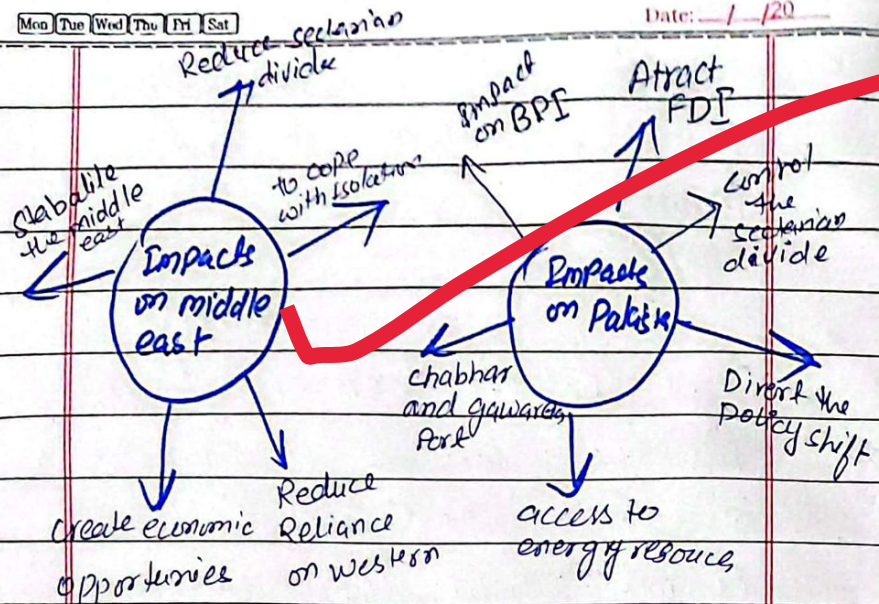 Mon Tue Wed Thu Fri Sat
Date: __/__/20
Reduce sectarian
divide
to cope
with Issolation
Stabalile
the middle
east
Impacts
on middle
east
Create economic
opportunies
Reduce
Reliance
on western
Impact
on BPI
Atract
FDI
Control
the
sectarian
divide
Impacts
on Pakistn
Chabhar
and gawarda
Port
Divert the
Policy shift
access to
energy resouce